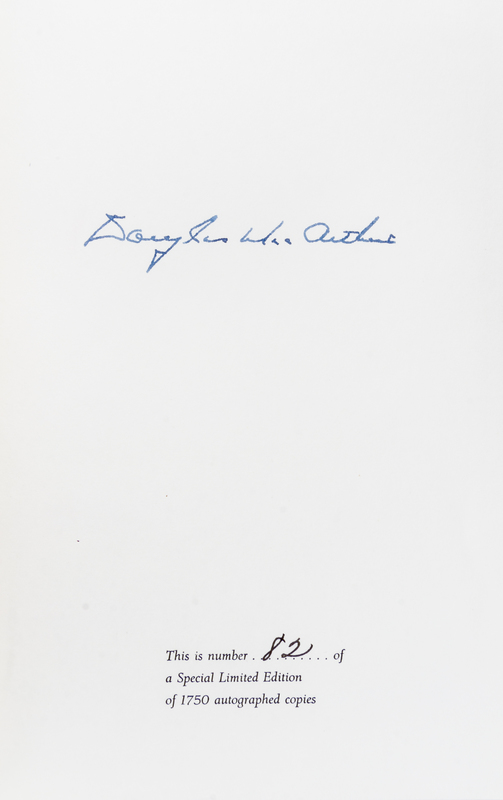 Douglas MacArthur
This is number . 82 ....... of
a Special Limited Edition
of 1750 autographed copies